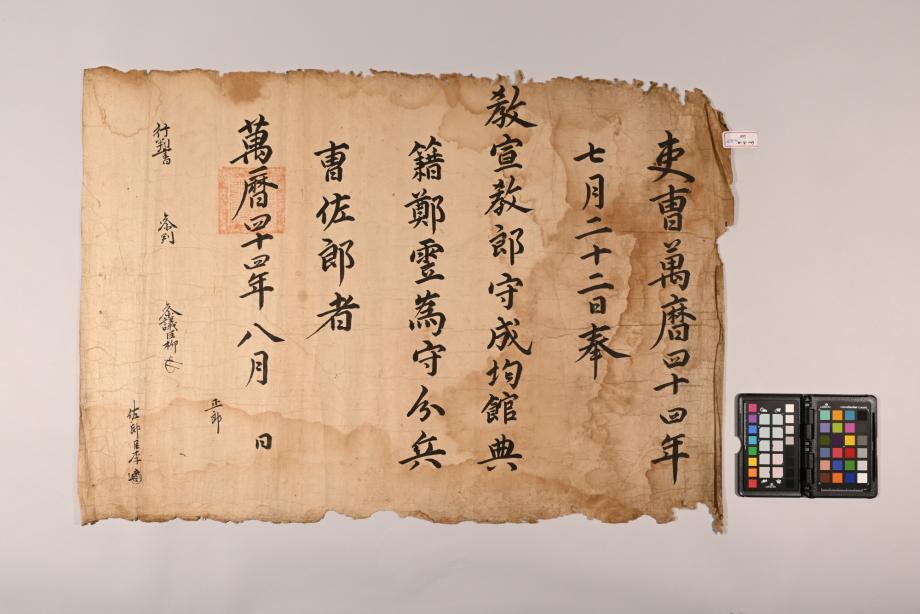 吏曺萬曆四十四年
七月二十二日奉
敎宣敎郎守成均館典
籍鄭霊為守分兵
曺佐郎者
萬曆四十四年八月 日
正郎
行判書 参判 参議臣柳
佐郎臣李